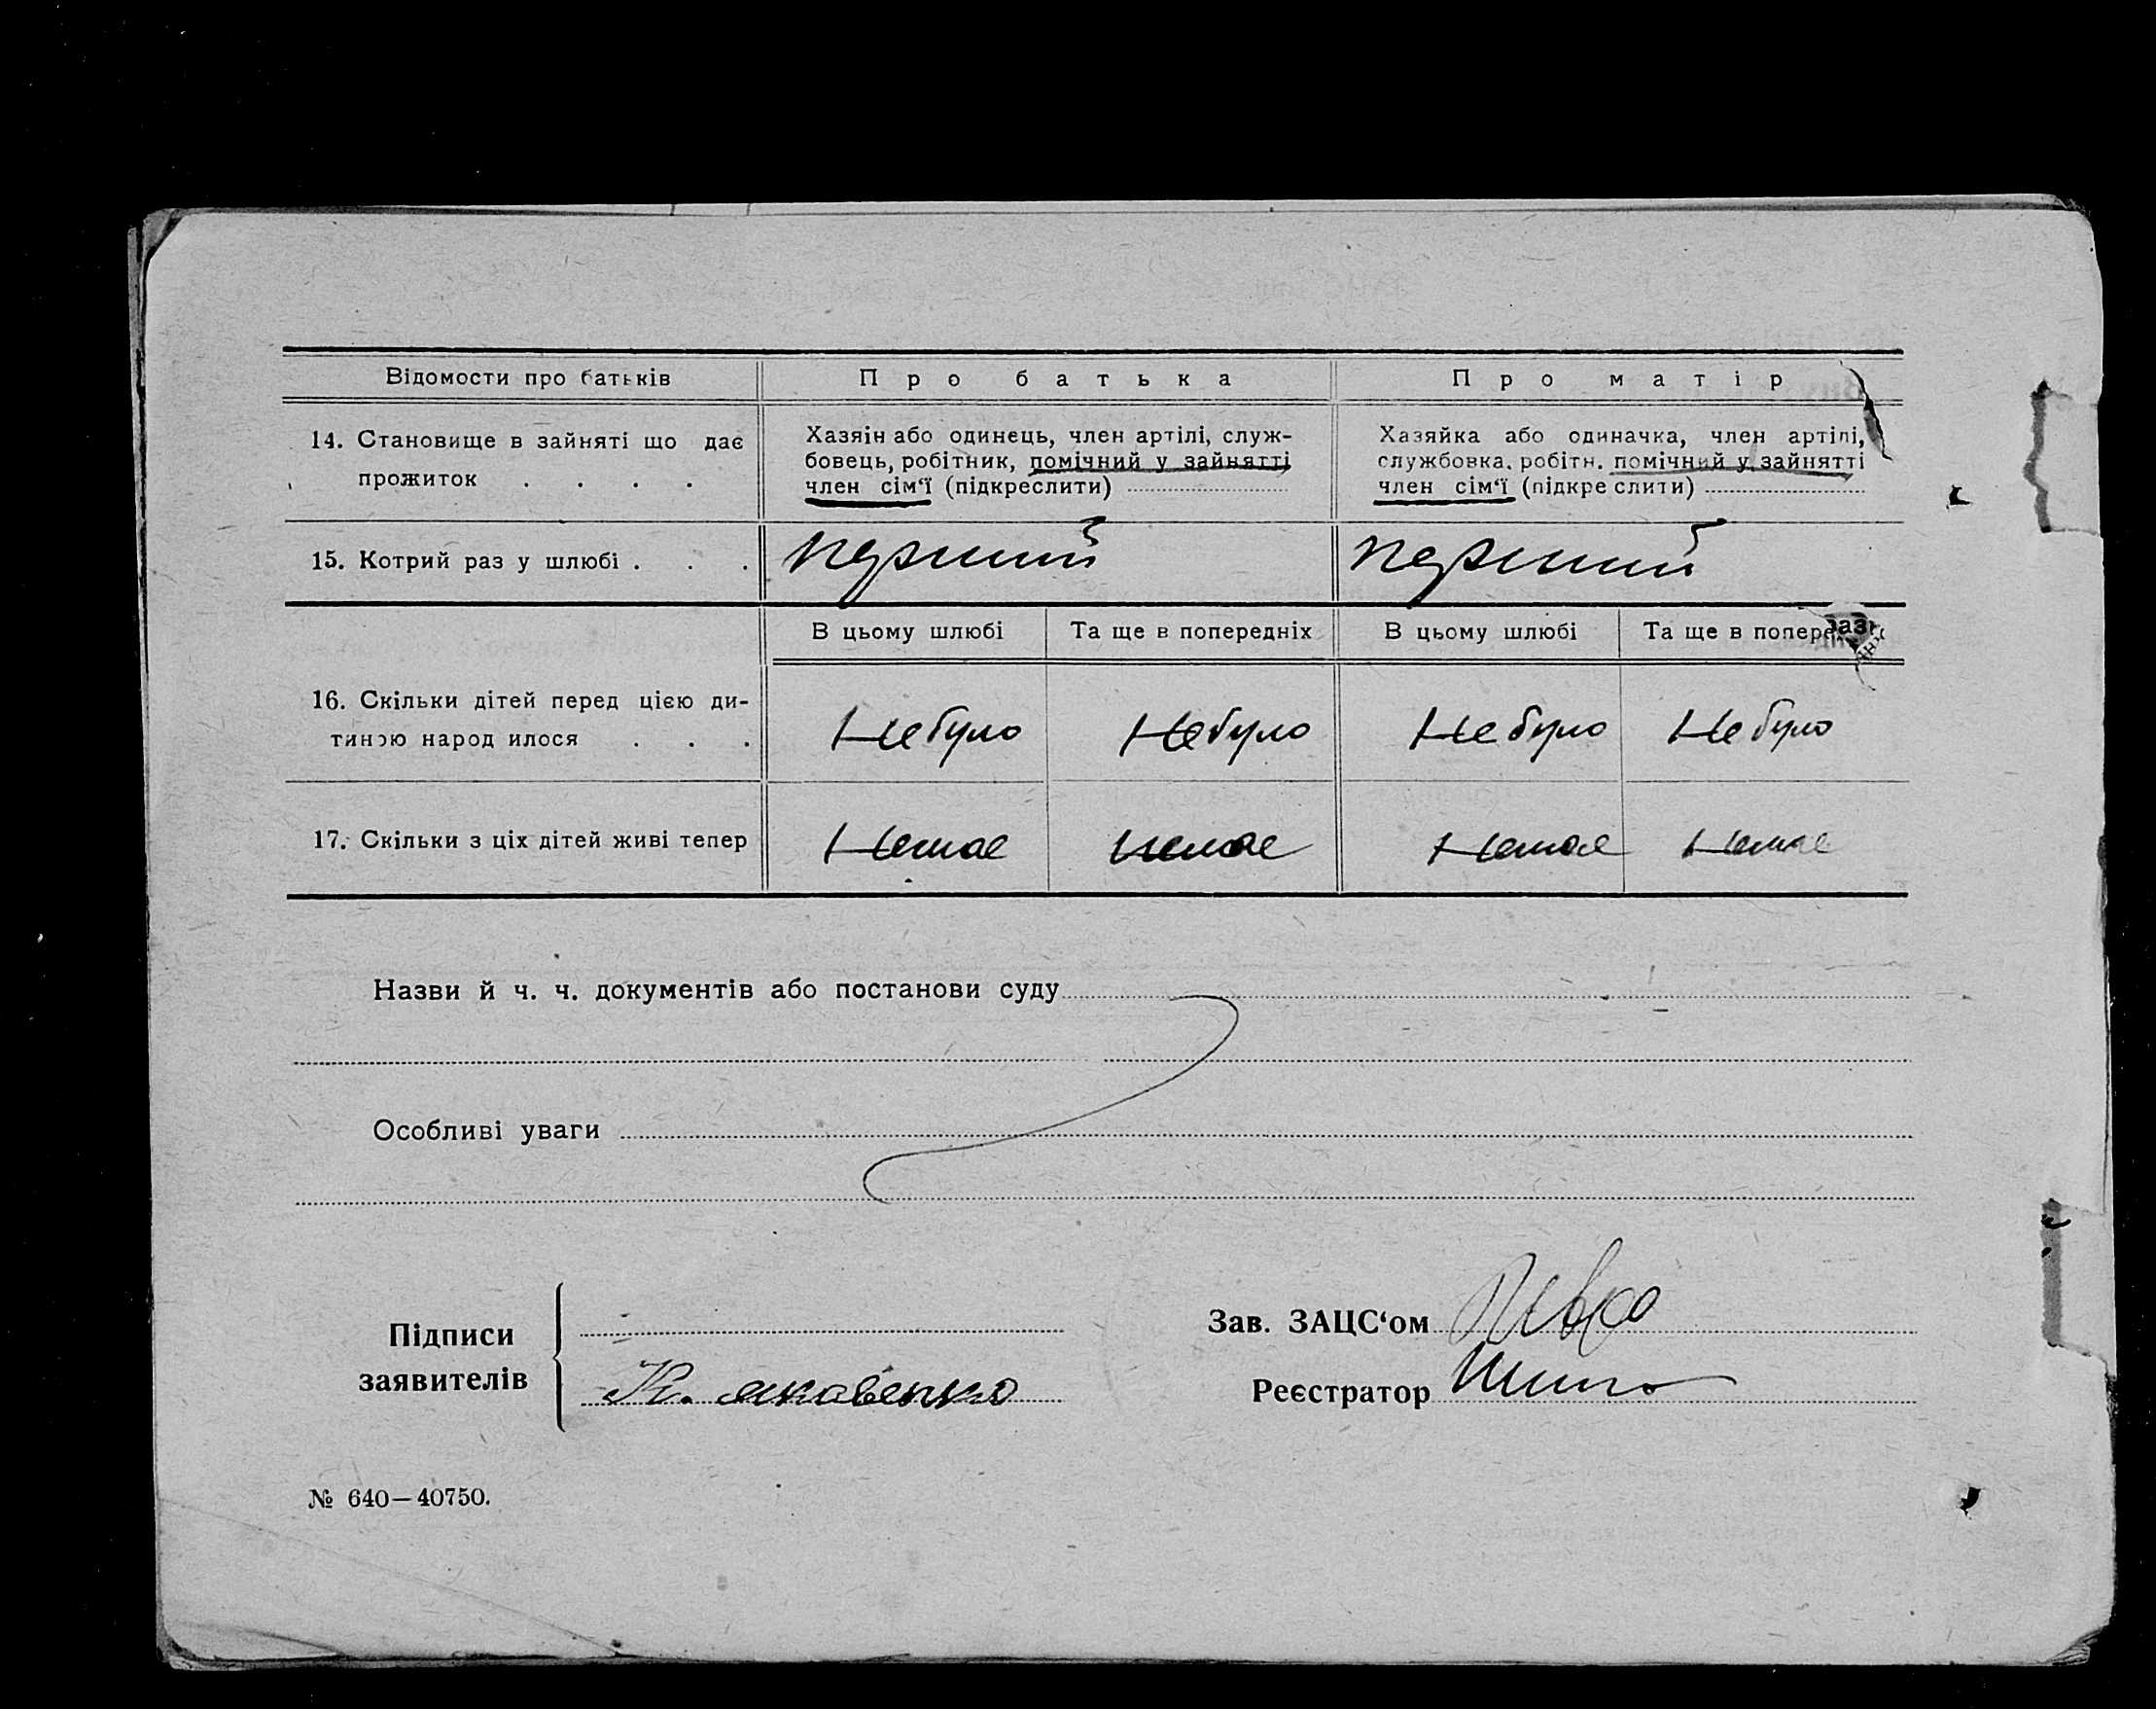 Відомости про батьків Про батька Про матір
14. Становище в зайняті що дає прожиток . . . .
Хазяін або одинець, член артілі, служ-
бовець, робітник, помічний у зайнятті
член сім‘ї (підкреслити)
Хазяйка або одиначка, член артілі,
службовка. робітн. помічний у зайнятті
член сім‘ї (підкреслити)
15. Котрий раз у шлюбі . . . перший перший
В цьому шлюбі Та ще в попередніх В цьому шлюбі Та ще в
16. Скільки дітей перед цією ди-
тиною народилося . . . Не було Не було Не було Не було
17. Скільки з ціх дітей живі тепер Немає немає Немає Немає
Назви й ч. ч. документів або постанови суду
Особливі уваги
Підписи
заявителів
К. Яковенко
Зав. ЗАЦС‘ом
Реєстратор
№ 640—40750.